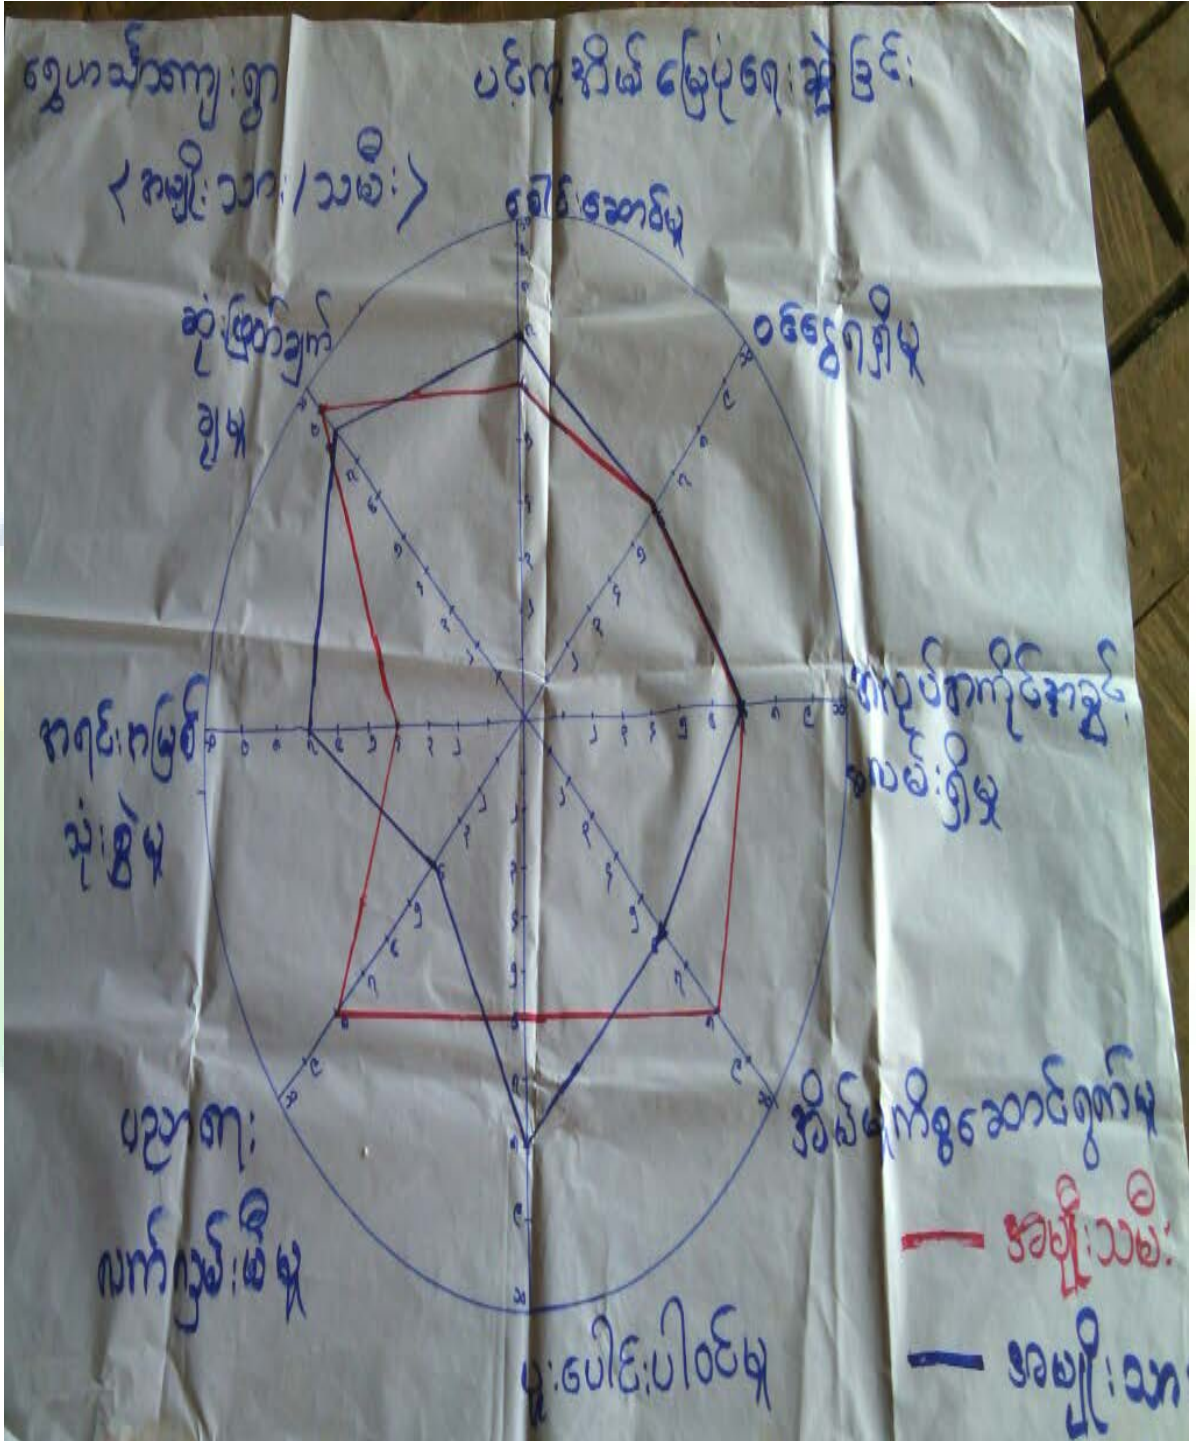 ရွှေဟင်္သာကျေးရွာ
ပင့်ကူအိမ် မြေပုံရေးဆွဲခြင်း
< အမျိုးသား / သမီး >
ခေါင်းဆောင်မှု
ဝင်ငွေရရှိမှု
အလုပ်အကိုင်အခွင့်
အလမ်းရှိမှု
အိမ်မှုကိစ္စဆောင်ရွက်မှု
ပူးပေါင်းပါဝင်မှု
ပညာရေး
လက်လှမ်းမီမှု
အရင်းအမြစ်
သုံးစွဲမှု
ဆုံးဖြတ်ချက်
ချမှု
အမျိုးသမီး
အမျိုးသား